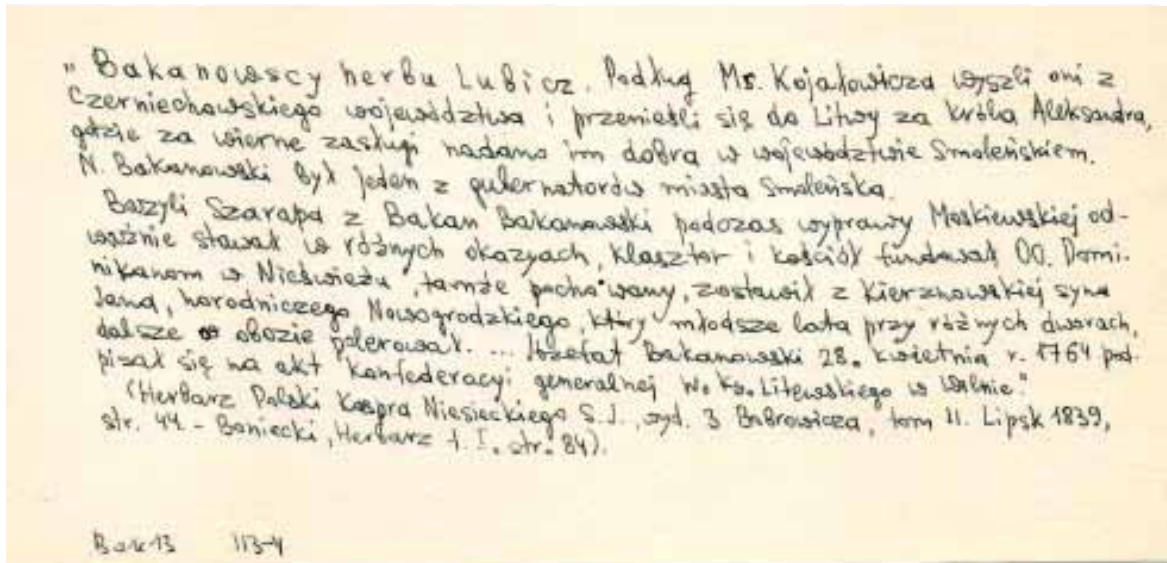 "Bakanowscy herbu Lubicz. Podług Ms. Kojałowicza wyszli oni z
Czerniechowskiego województwa i przenieśli się do Litwy za króla Aleksandra,
gdzie za wierne zasługi nadano im dobra w województwie Smoleńskiem.
N. Bakanowski był jeden z gubernatorów miasta Smoleńska.
Bazyli Szarapa z Bakan Bakanowski podczas wyprawy Moskiewskiej od-
ważnie stawał w różnych okazyach, klasztor i kościół fundował OO. Domi-
nikanom w Nieświeżu, tamże pochowany, zostawił z Kierznowskiej syna
Jana, horodniczego Nowogrodzkiego, który młodsze lata przy różnych dworach,
dalsze w obozie polerował. ... Józefat Bakanowski 28. kwietnia r. 1764 pod-
pisał się na akt Konfederacyi generalnej W. Ks. Litewskiego w Wilnie."
(Herbarz Polski Kaspra Niesieckiego S.J., wyd. 3 Bobrowicza, tom II. Lipsk 1839,
str. 44. - Boniecki, Herbarz t. I. str. 84).
Bak 13 113-4